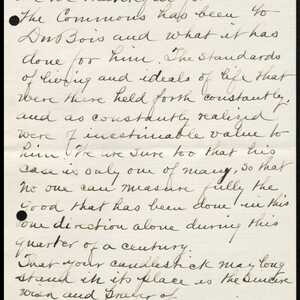 The Commons has been to
DuBois and what it has
done for him. The standards
of living and ideals of life that
were there held forth constantly,
and as constantly realized
were of inestimable value to
him. We are sure too that his
case is only one of many, so that
no one can measure fully the
good that has been done in this
one direction alone during this
quarter of a century.
That your candlestick may long
stand in its place is the sincere
wish and prayer of